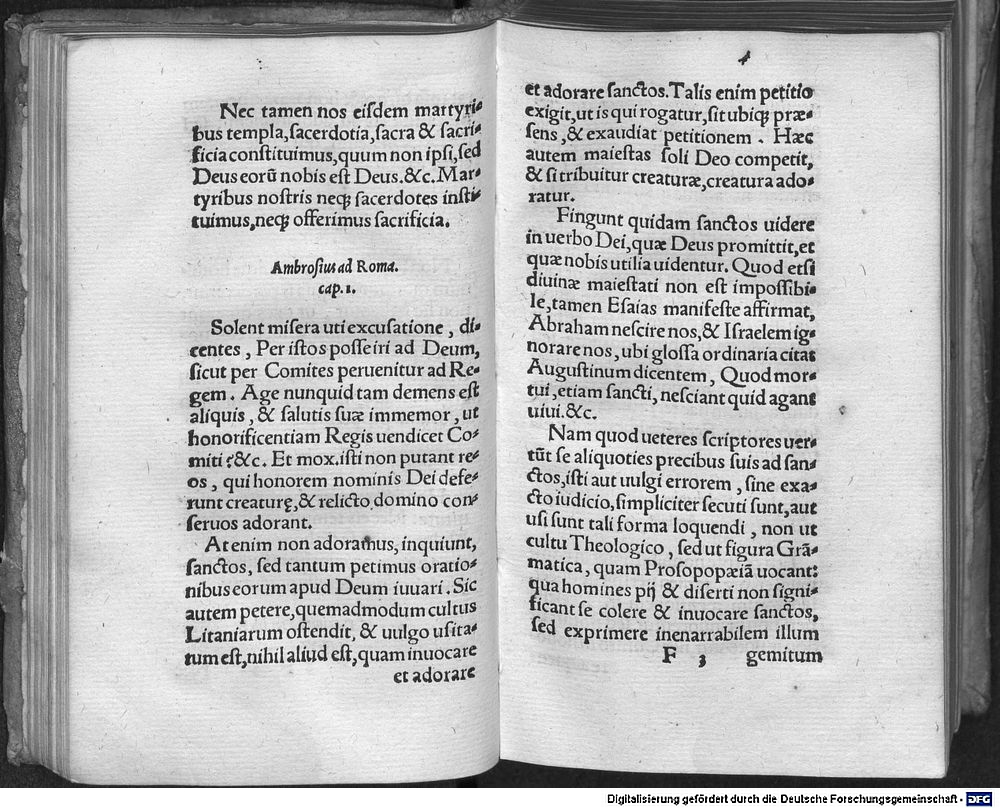 Nec tamen nos eiſdem martyri-
bus templa, ſacerdotia, ſacra & ſacri-
ficia conſtituimus, quum non ipſi, ſed
Deus eorũ nobis eſt Deus. &c. Mar-
tyribus noſtris neqꝫ ſacerdotes inſti-
tuimus, neqꝫ offerimus ſacrificia.
Ambroſius ad Roma.
cap. 1.
Solent miſera uti excuſatione, di-
centes, Per iſtos poſſe iri ad Deum,
ſicut per Comites peruenitur ad Re-
gem. Age nunquid tam demens eſt
aliquis, & ſalutis ſuæ immemor, ut
honorificentiam Regis uendicet Co-
miti? &c. Et mox. iſti non putant re-
os, qui honorem nominis Dei defe-
runt creaturę, & relicto domino con-
ſeruos adorant.
At enim non adoramus, inquiunt,
ſanctos, ſed tantum petimus oratio-
nibus eorum apud Deum iuuari. Sic
autem petere, quemadmodum cultus
Litaniarum oſtendit, & uulgo uſita-
tum eſt, nihil aliud eſt, quam inuocare
et adorare
et adorare ſanctos. Talis enim petitio
exigit, ut is qui rogatur, ſit ubiqꝫ præ-
ſens, & exaudiat petitionem. Hæc
autem maieſtas ſoli Deo competit,
& ſi tribuitur creaturæ, creatura ado-
ratur.
Fingunt quidam ſanctos uidere
in uerbo Dei, quæ Deus promittit, et
quæ nobis utilia uidentur. Quod etſi
diuinæ maieſtati non eſt impoſſibi-
le, tamen Eſaias manifeſte affirmat,
Abraham neſcire nos, & Iſraelem ig-
norare nos, ubi gloſſa ordinaria citat
Auguſtinum dicentem, Quod mor-
tui, etiam ſancti, neſciant quid agant
uiui. &c.
Nam quod ueteres ſcriptores uer-
tũt ſe aliquoties precibus ſuis ad ſan-
ctos, iſti aut uulgi errorem, ſine exa-
cto iudicio, ſimpliciter ſecuti ſunt, aut
uſi ſunt tali forma loquendi, non ut
cultu Theologico, ſed ut figura Grã-
matica, quam Proſopopæiã uocant:
qua homines pij & diſerti non ſigni-
ficant ſe colere & inuocare ſanctos,
ſed exprimere inenarrabilem illum
F 3 gemitum
Digitalisierung gefördert durch die Deutsche Forschungsgemeinschaft - DFG